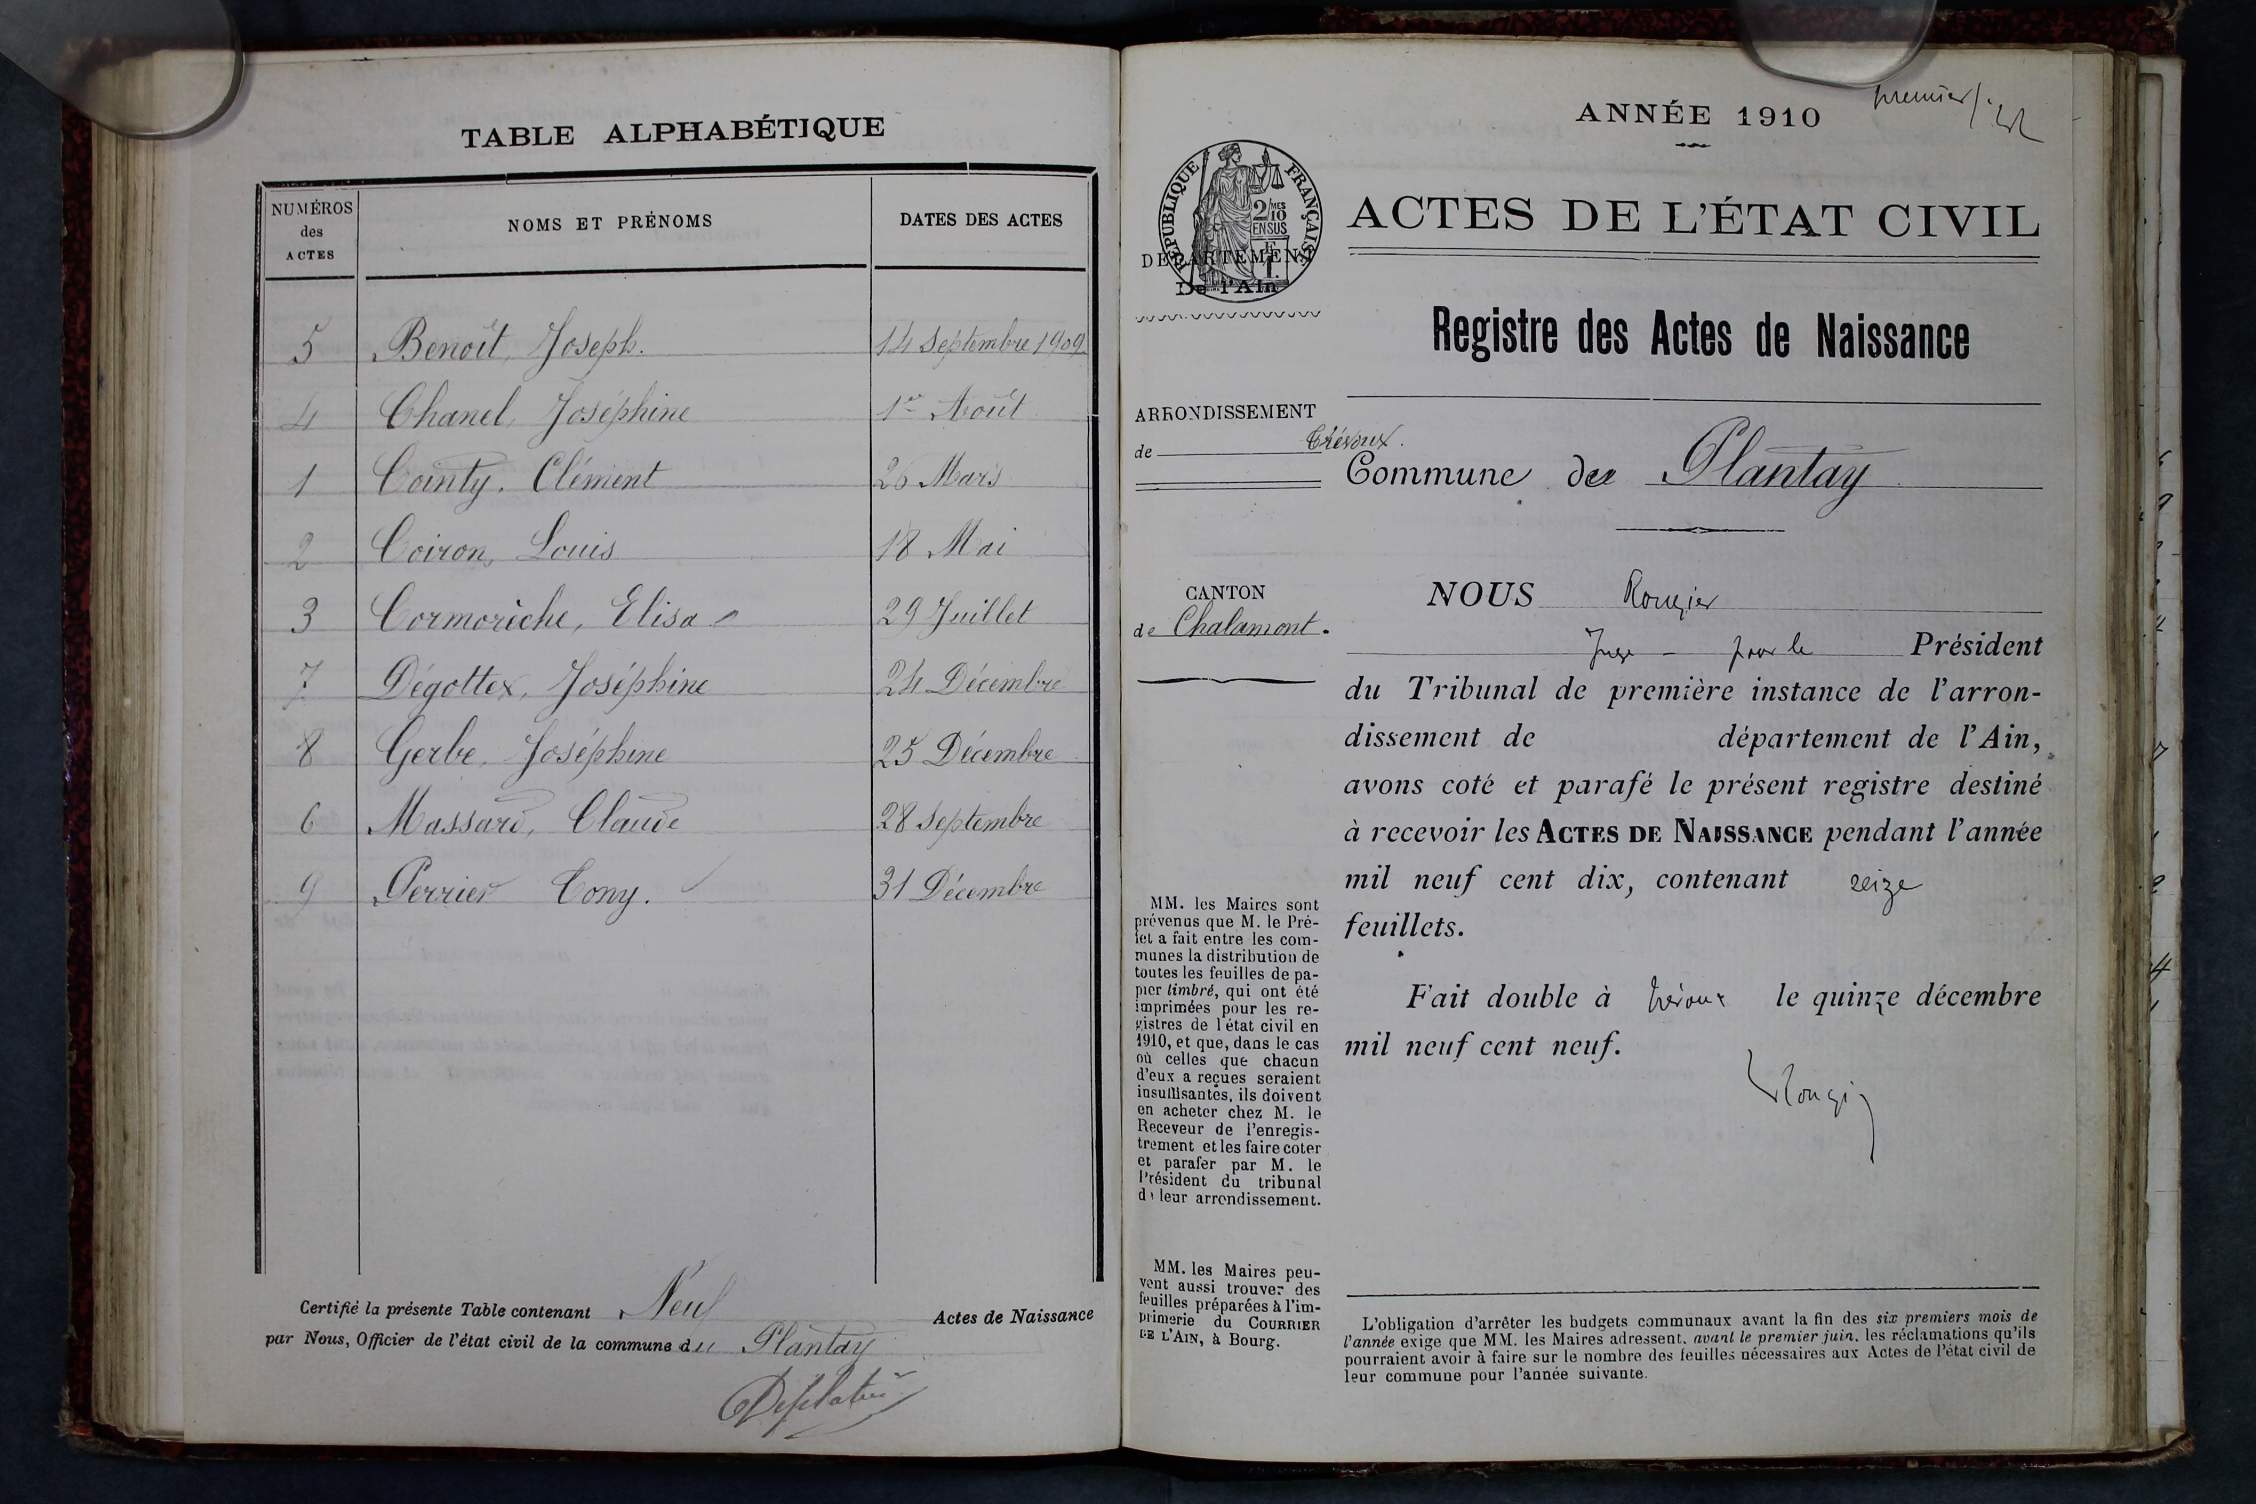 TABLE ALPHABÉTIQUE
NUMÉROS des ACTES
NOMS ET PRÉNOMS
DATES DES ACTES
5 Benoît, Joseph. 14 Septembre 1909
4 Chanel, Joséphine 1er Août
1 Cointy, Clément 26 Mars
2 Coiron, Louis 18 Mai
3 Cormorèche, Elisa 29 Juillet
7 Dégottex, Joséphine 24 Décembre
8 Gerbe, Joséphine 25 Décembre
6 Massard, Claude 28 Septembre
9 Perrier Tony. 31 Décembre
Certifié la présente Table contenant Neuf Actes de Naissance
par Nous, Officier de l'état civil de la commune du Plantay
ANNÉE 1910
premier
RÉPUBLIQUE FRANÇAISE
2/10 MES
EN SUS
DÉPARTEMENT
De l'Ain
ACTES DE L'ÉTAT CIVIL
Registre des Actes de Naissance
ARRONDISSEMENT
de Trévoux.
Commune de Plantay
CANTON
de Chalamont.
NOUS Rougier
Juge - pour le Président
du Tribunal de première instance de l'arron-
dissement de département de l'Ain,
avons coté et parafé le présent registre destiné
à recevoir les ACTES DE NAISSANCE pendant l'année
mil neuf cent dix, contenant seize
feuillets.
Fait double à Trévoux le quinze décembre
mil neuf cent neuf.
Rougier
MM. les Maires sont
prévenus que M. le Pré-
fet a fait entre les com-
munes la distribution de
toutes les feuilles de pa-
pier timbré, qui ont été
imprimées pour les re-
gistres de l'état civil en
1910, et que, dans le cas
où celles que chacun
d'eux a reçues seraient
insuffisantes, ils doivent
en acheter chez M. le
Receveur de l'enregis-
trement et les faire coter
et parafer par M. le
Président du tribunal
de leur arrondissement.
MM. les Maires peu-
vent aussi trouver des
feuilles préparées à l'im-
primerie du COURRIER
DE L'AIN, à Bourg.
L'obligation d'arrêter les budgets communaux avant la fin des six premiers mois de
l'année exige que MM. les Maires adressent, avant le premier juin, les réclamations qu'ils
pourraient avoir à faire sur le nombre des feuilles nécessaires aux Actes de l'état civil de
leur commune pour l'année suivante.